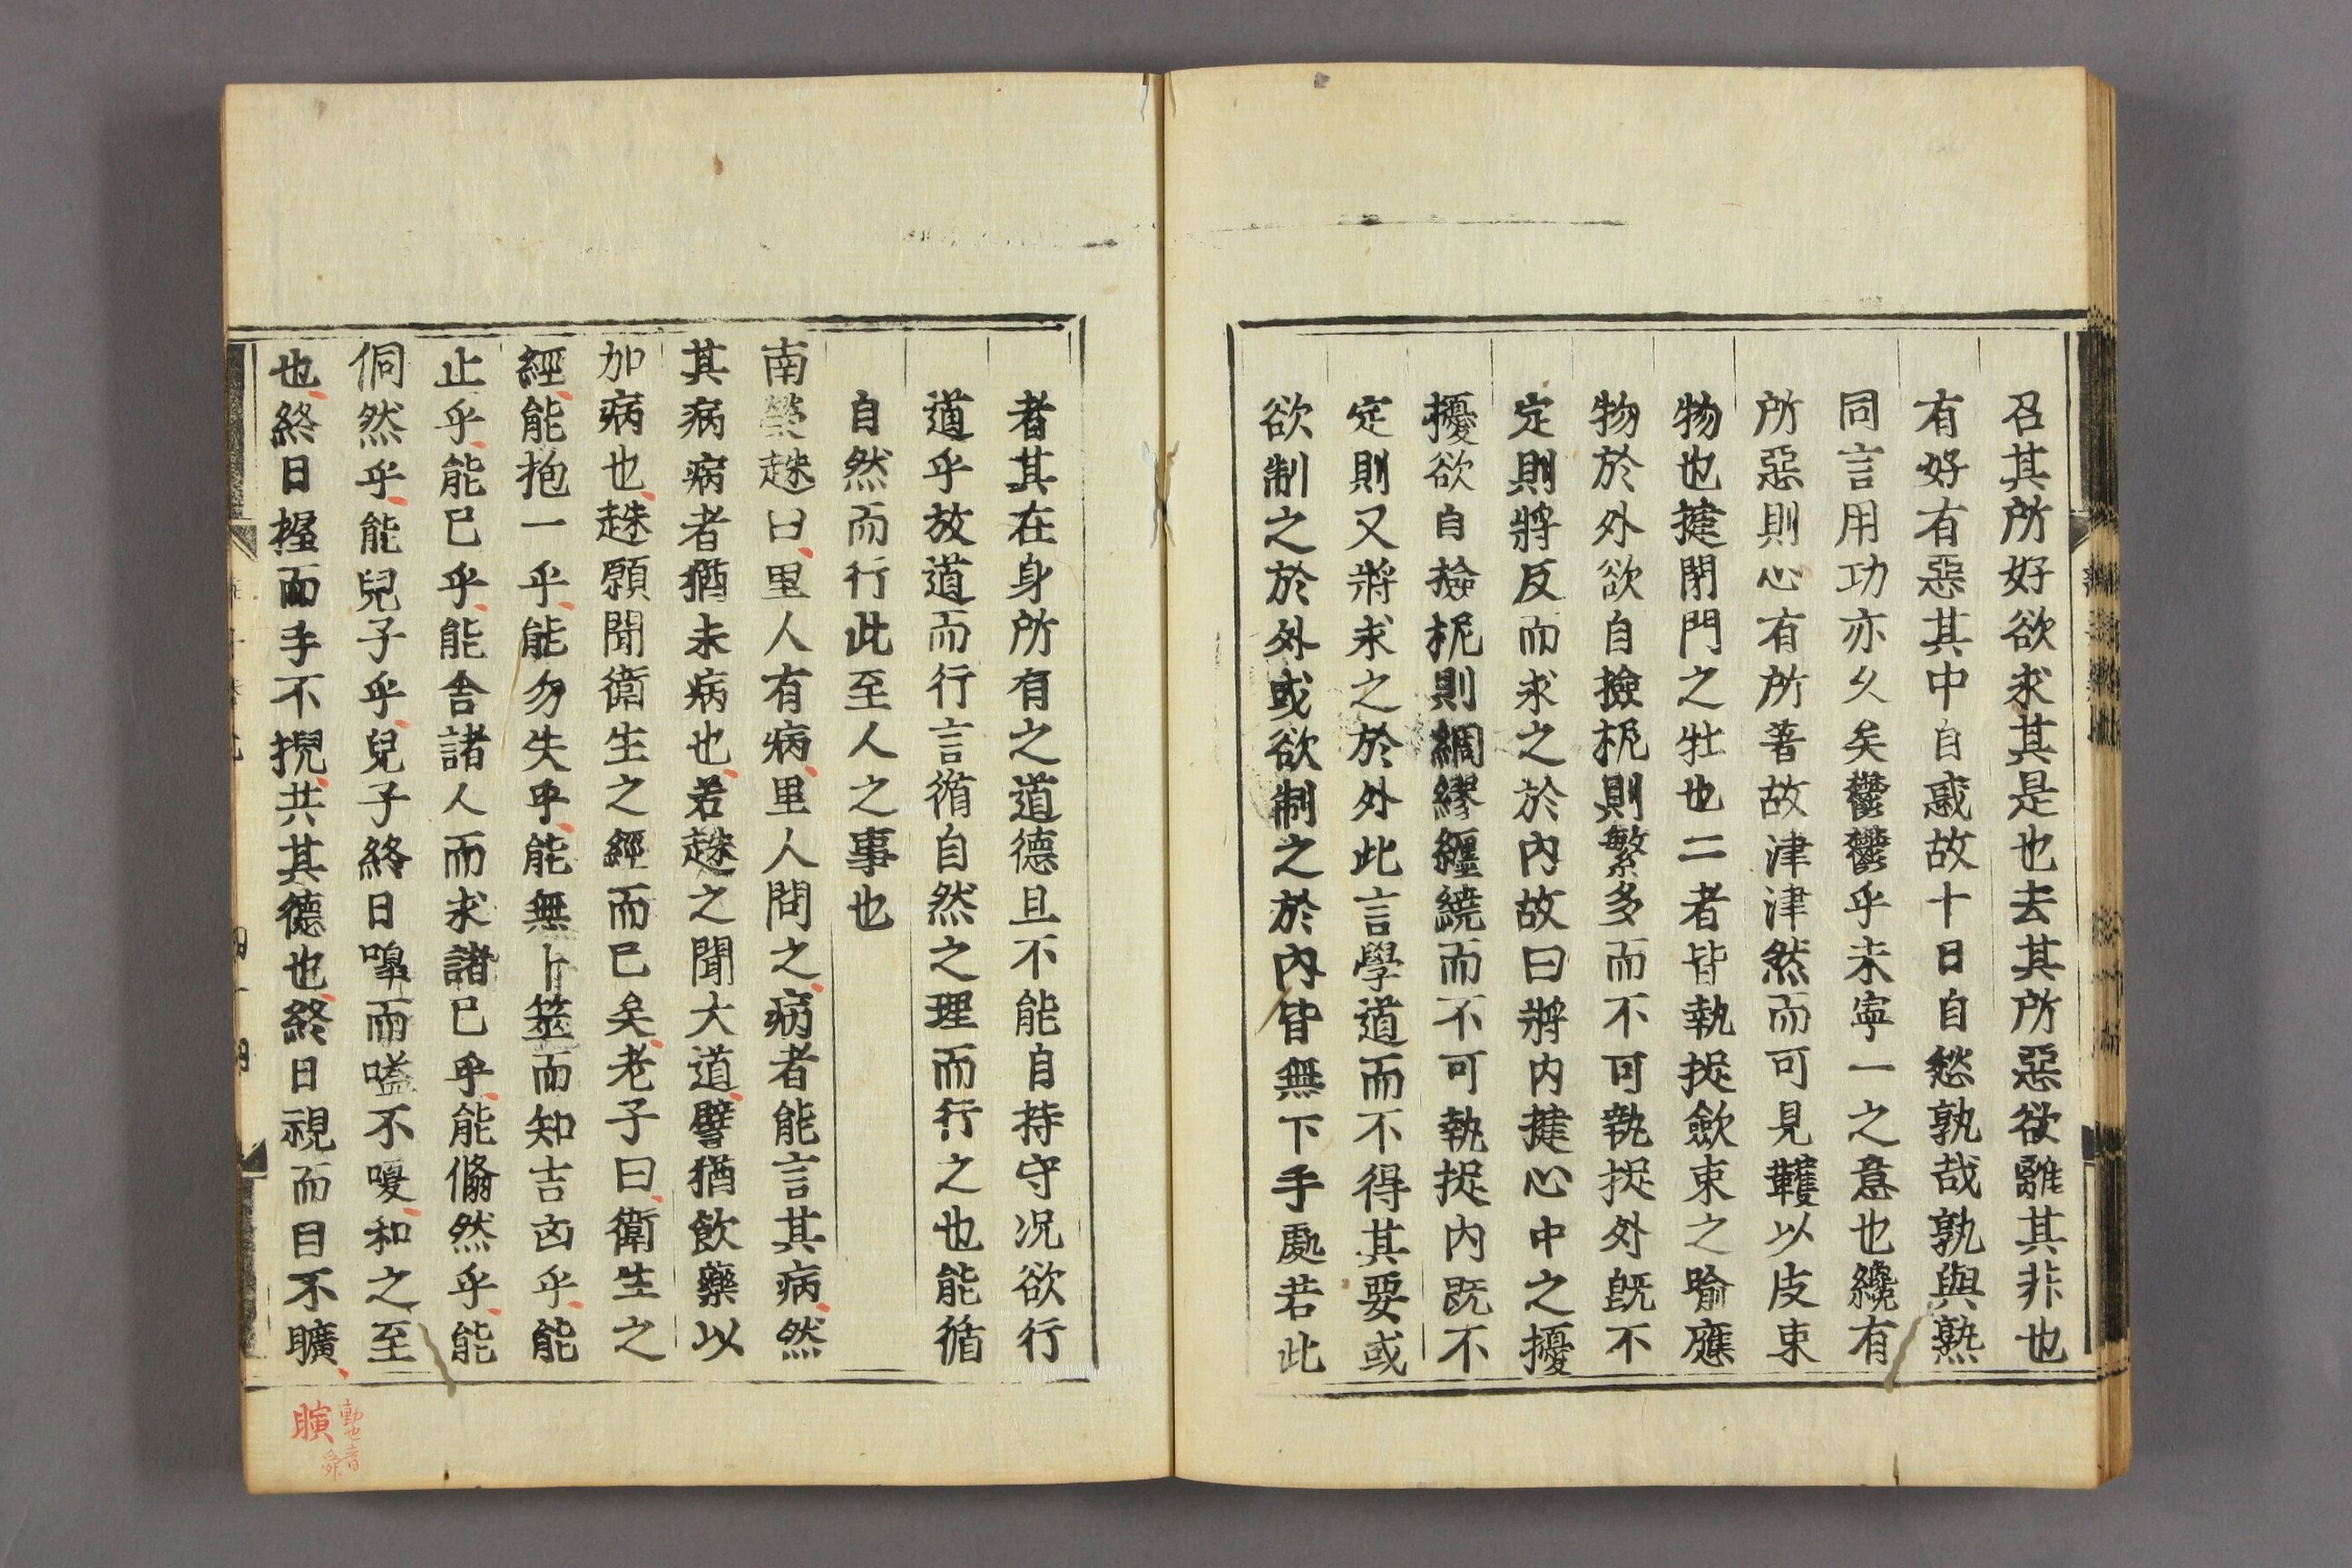 召其所好欲求其是也去其所惡欲離其非也
有好有惡其中自慼故十日自愁孰哉孰與熟
同言用功亦久矣鬱鬱乎未寧一之意也纔有
所惡則心有所著故津津然而可見韄以皮束
物也揵閉門之牡也二者皆執捉歛束之喻應
物於外欲自撿柅則繁多而不可執捉外旣不
定則將反而求之於內故曰將內揵心中之擾
擾欲自撿柅則綢繆纏繞而不可執捉內旣不
定則又將求之於外此言學道而不得其要或
欲制之於外或欲制之於內皆無下手處若此
者其在身所有之道德且不能自持守况欲行
道乎放道而行言循自然之理而行之也能循
自然而行此至人之事也
南榮趎曰里人有病里人問之病者能言其病然
其病病者猶未病也若趎之聞大道譬猶飲藥以
加病也趎願聞衛生之經而已矣老子曰衛生之
經能抱一乎能勿失乎能無卜筮而知吉凶乎能
止乎能已乎能舍諸人而求諸已乎能翛然乎能
侗然乎能兒子乎兒子終日嘷而嗌不嗄和之至
也終日握而手不掜共其德也終日視而目不矌
瞚
動也音
舜
四十四